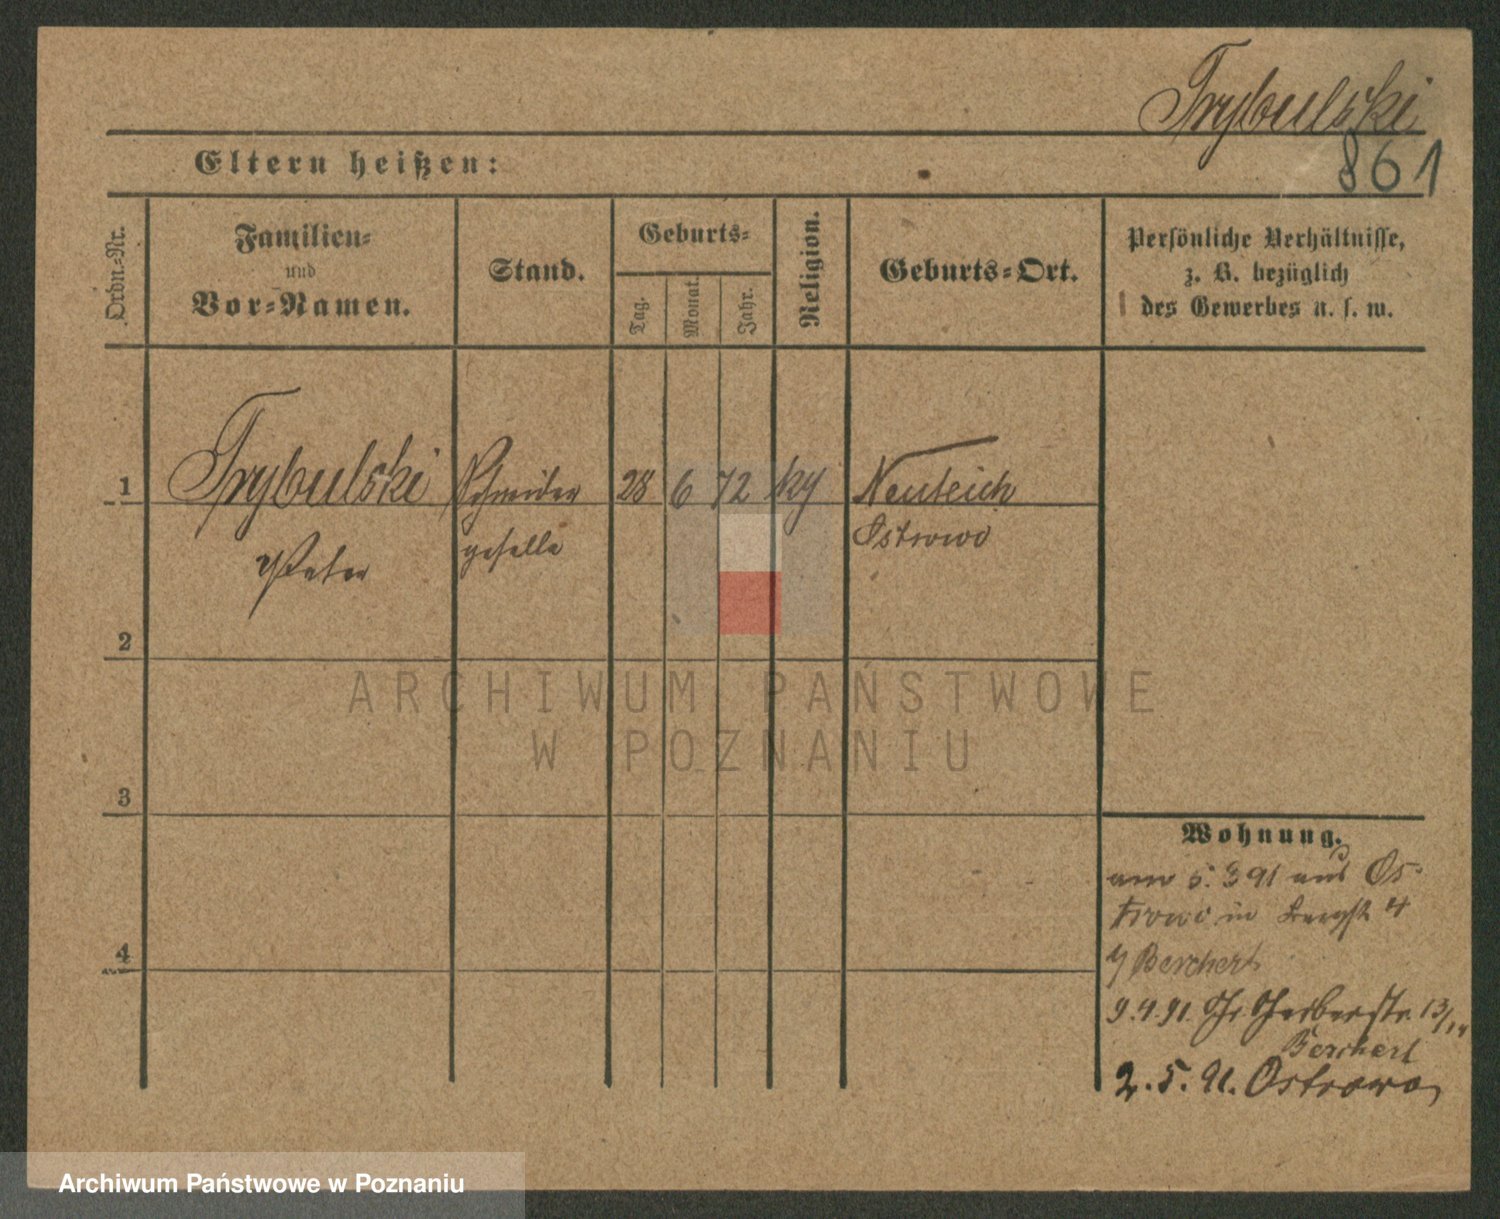 Trybulski
861
Eltern heißen:
Ordn.-Nr.
Familien-
und
Vor-Namen.
Stand.
Geburts-
Tag.
Monat.
Jahr.
Religion.
Geburts-Ort.
Persönliche Verhältnisse,
z. B. bezüglich
des Gewerbes u. s. w.
1 Trybulski Schneider 28 6 72 Neuteich
Peter geselle Ostrowo
2
3
4
ARCHIWUM PAŃSTWOWE
W POZNANIU
Wohnung.
am 5. 3 91 aus Os-
trowo in Bergstr 4
Berchert
9.4.91. Gr. Gerberstr. 13/14
Berchert
2. 5. 91. Ostrowo
Archiwum Państwowe w Poznaniu